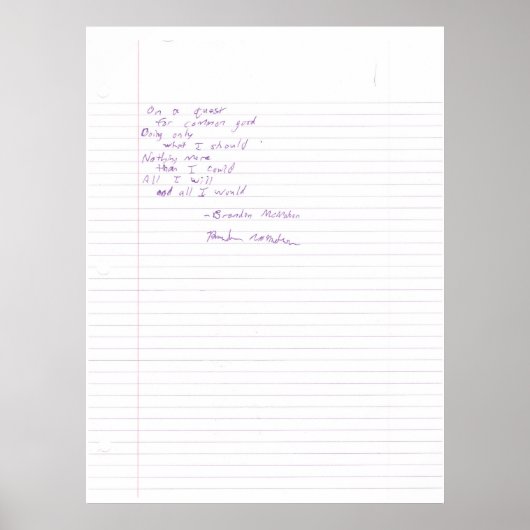 On a quest
for common good
Doing only
what I should
Nothing more
than I could
All I will
and all I would
- Brandon McMahon
Brandon McMahon